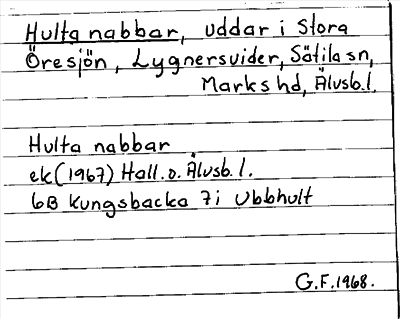 Hulta nabbar, uddar i Stora
Öresjön, Lygnersvider, Sätila sn,
Marks hd, Älvsb.l.
Hulta nabbar
ek (1967) Hall. o. Älvsb. l.
6B Kungsbacka 7i Ubbhult
G.F. 1968.